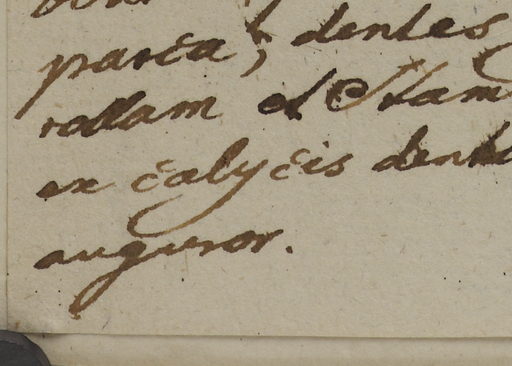 parca; dentes
rollam et Stam
ex calycis dent
auguror.